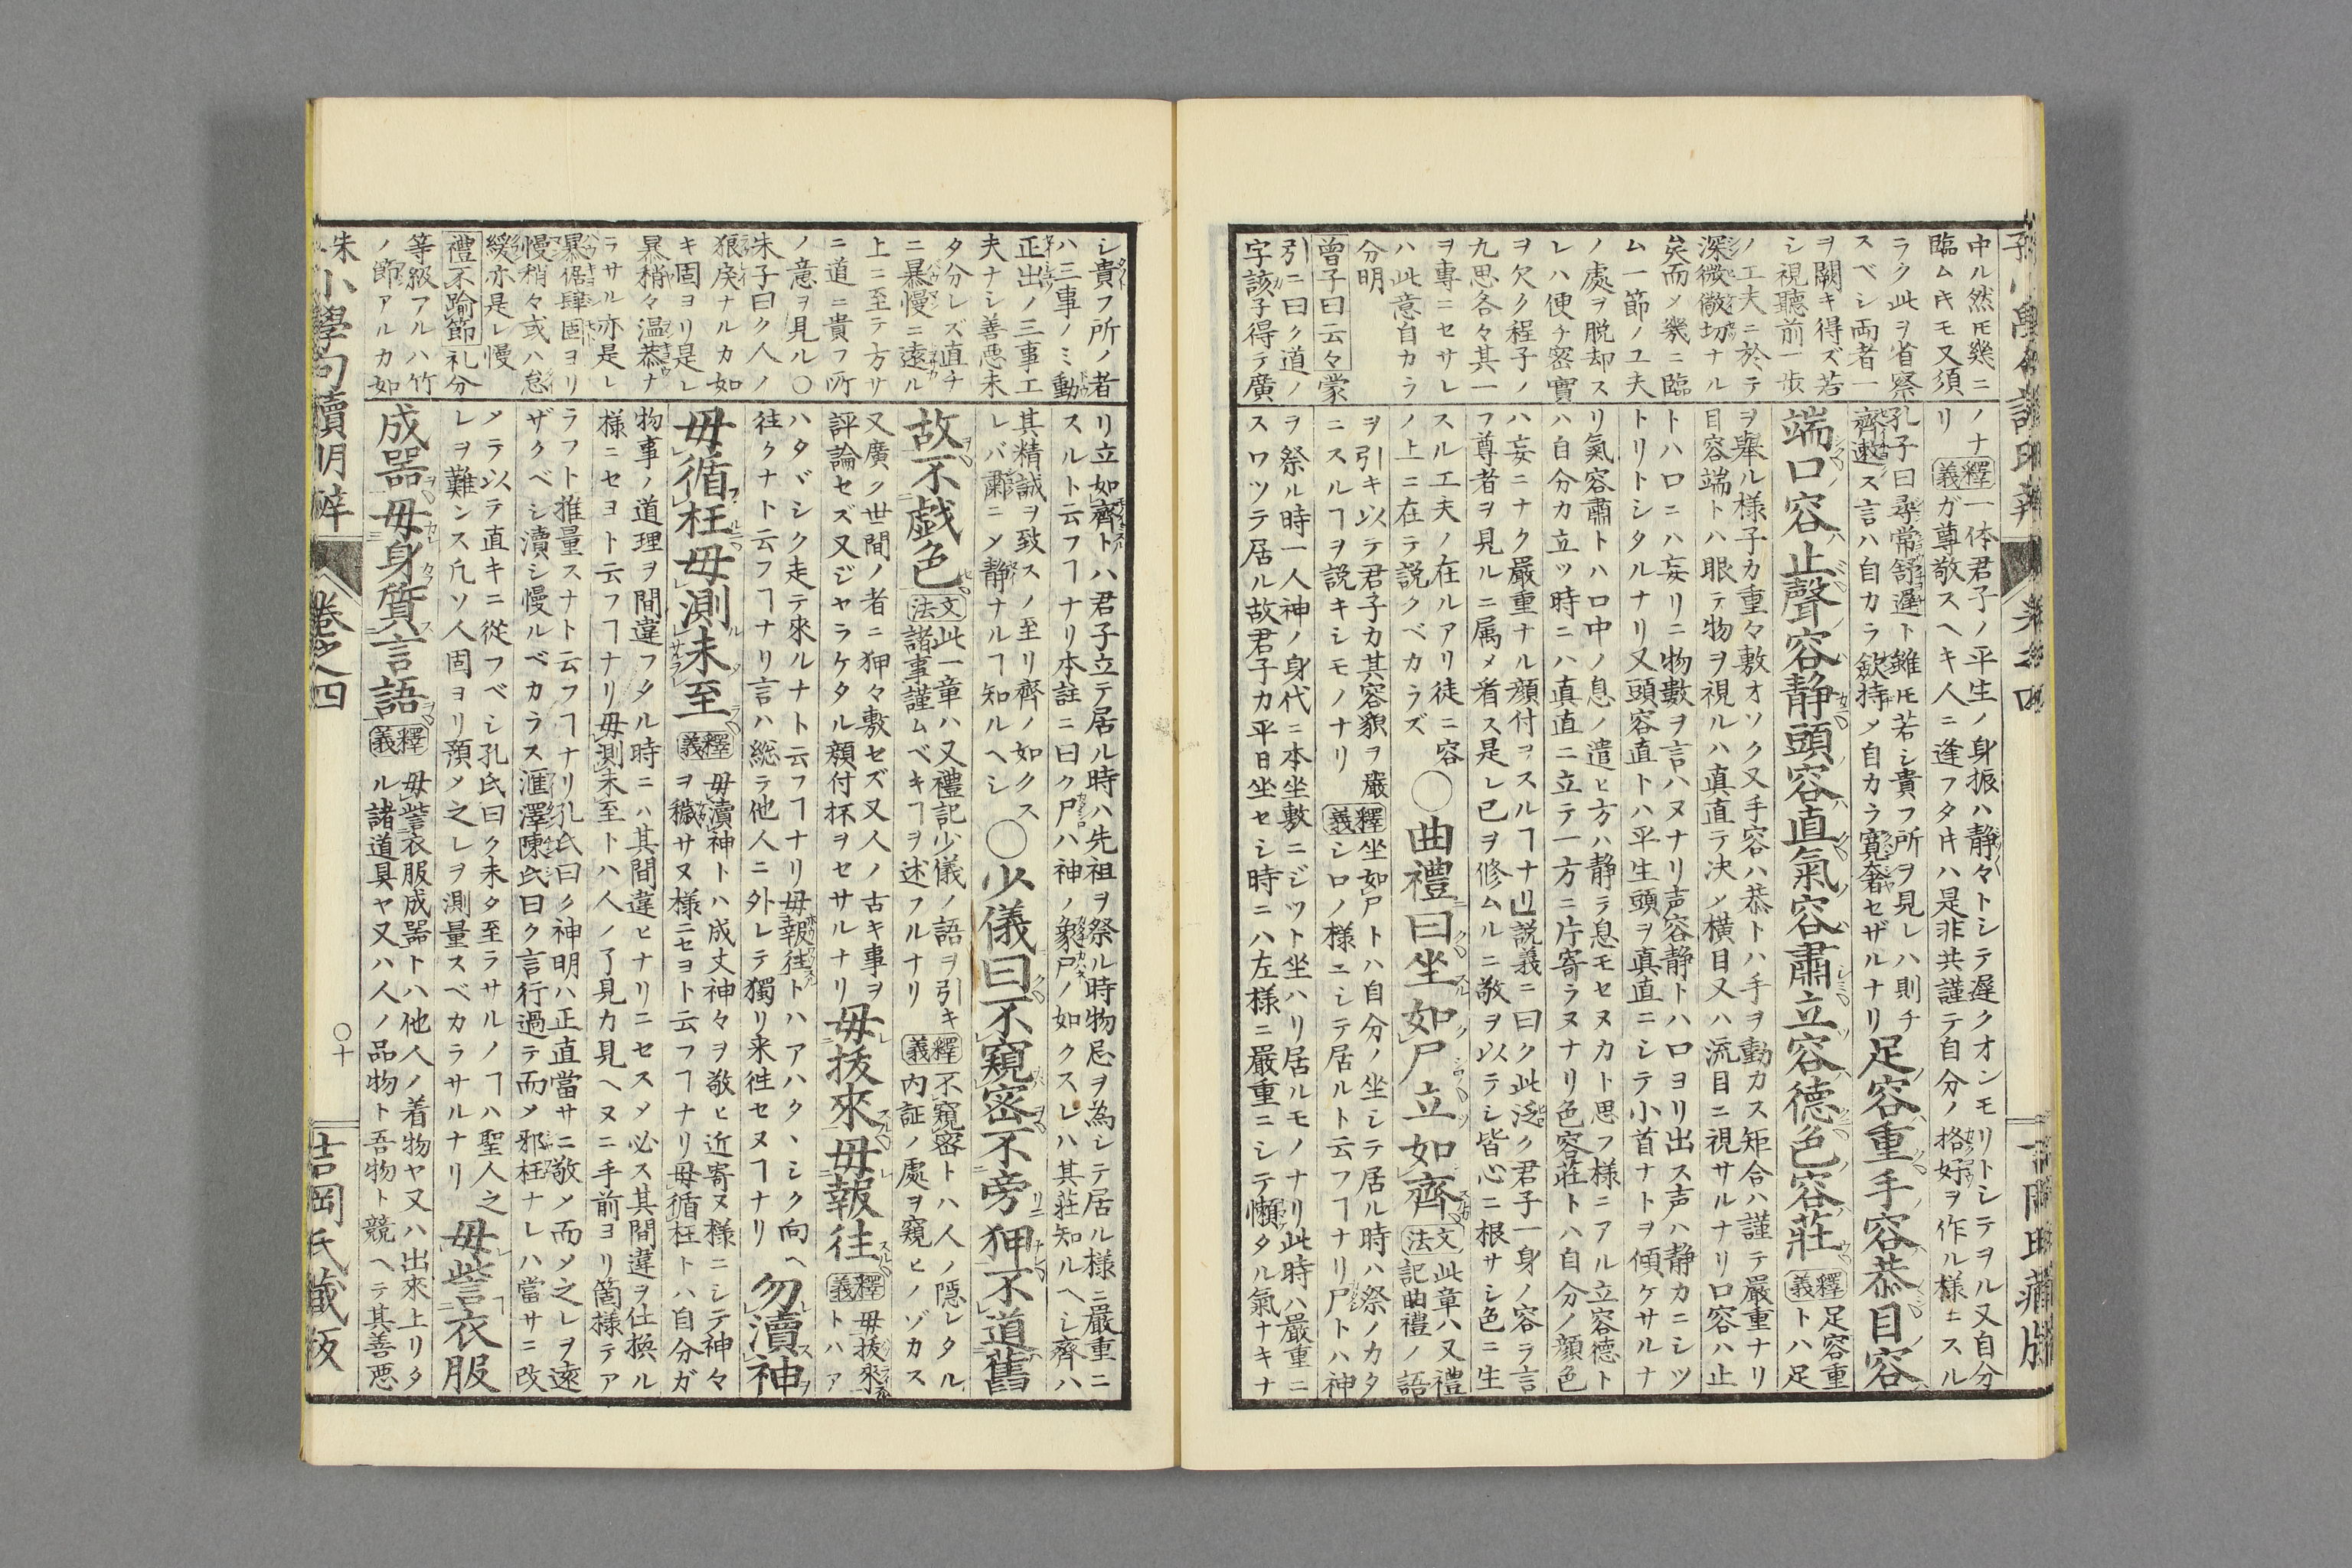 中ル然𪜈幾ニ
臨ム𪜈モ又須
ラク此ヲ省察
スベシ両者一
ヲ闕キ得ズ若
シ視聽前一歩
ノ工夫ニ於テ
深微敵切ナル
矣而メ幾ニ臨
ム一節ノユ夫
ノ處ヲ脱却ス
レハ便チ密實
ヲ欠ク程子ノ
九思各々其一
ヲ專ニセサレ
ハ此意自カラ
分明
曽子曰云々蒙
引ニ曰ク道ノ
字該子得テ廣
ノナ釋義一体君子ノ平生ノ身振ハ静々トシテ遲クオンモリトシテヲル又自分
リガ尊敬スヘキ人ニ逢フタ𪜈ハ是非共謹テ自分ノ格好ヲ作ル様ニスル
孔子曰尋常舒遲ト雖𪜈若シ貴フ所ヲ見レハ則チ
齊遬ス言ハ自カラ歛持メ自カラ寛奢セザルナリ
足容重手容恭目容
端口容止聲容静頭容直氣容肅立容德色容莊
釋義足容重
トハ足
ヲ舉ル様子カ重々敷オソク又手容ハ恭トハ手ヲ動カス矩合ハ謹テ嚴重ナリ
目容端トハ眼テ物ヲ視ルハ真直テ决メ横目又ハ流目ニ視サルナリ口容ハ止
トハロニハ妄リニ物數ヲ言ハヌナリ声容静トハロヨリ出ス声ハ静カニシツ
トリトシタルナリ又頭容直トハ平生頭ヲ真直ニシテ小首ナトヲ傾ケサルナ
リ氣容肅トハロ中ノ息ノ遣ヒ方ハ静ラ息モセヌカト思フ様ニアル立容德ト
ハ自分カ立ツ時ニハ真直ニ立テ一方ニ片寄ラヌナリ色容莊トハ自分ノ顔色
ハ妄ニナク嚴重ナル顔付ヲスルヿナリ説義ニ曰ク此泛ク君子一身ノ容ラ言
フ尊者ヲ見ルニ属メ看ス是レ已ヲ修ムルニ敬ヲ以テシ皆心ニ根サシ色ニ生
スル工夫ノ在ルアリ徒ニ容
ノ上ニ在テ説クベカラズ
〇曲禮曰坐如尸立如齊
文法此章ハ又禮
記曲禮ノ語
ヲ引キ以テ君子カ其容貌ヲ嚴
ニスルヿヲ説キシモノナリ
釋義坐如尸トハ自分ノ坐シテ居ル時ハ祭ノカタ
シロノ様ニシテ居ルト云フヿナリ尸トハ神
ヲ祭ル時一人神ノ身代ニ本坐敷ニジツト坐ハリ居ルモノナリ此時ハ嚴重ニ
スワツテ居ル故君子カ平日坐セシ時ニハ左様ニ嚴重ニシテ懶タル氣ナキナ
シ貴フ所ノ者
ハ三事ノミ動
正出ノ三事工
夫ナシ善悪未
タ分レズ直チ
ニ暴慢ニ遠ル
上ニ至テ方サ
ニ道ニ貴フ所
ノ意ヲ見ル〇
朱子曰ク人ノ
狼戾ナルカ如
キ固ヨリ是レ
暴稍々温恭ナ
ヲサル亦是レ
暴倨肆固ヨリ
慢稍々或ハ怠
緩亦是レ慢
禮不踰節礼分
等級アルハ竹
ノ節アルカ如
リ立如齊トハ君子立テ居ル時ハ先祖ヲ祭ル時物忌ヲ為シテ居ル様ニ嚴重ニ
スルト云フヿナリ本註ニ曰ク尸ハ神ノ象尸ノ如クスレハ其莊知ルヘシ齊ハ
其精誠ヲ致スノ至リ齊ノ如クス
レバ肅ニメ静ナルヿ知ルヘシ
〇少儀曰不窺密不旁狎不道舊
故不戯色
文法此一章ハ又禮記少儀ノ語ヲ引キ
諸事謹ムベキヿヲ述フルナリ
釋義不窺密トハ人ノ隱レタル
内証ノ處ヲ窺ヒノゾカス
又廣ク世間ノ者ニ狎々敷セズ又人ノ古キ事ヲ
評論セズ又ジヤラケタル顔付抔ヲセサルナリ
毋拔來毋報往
釋義毋拔來
トハア
ハタヾシク走テ來ルナト云フヿナリ毋報往トハアハタヽシク向ヘ
往クナト云フヿナリ言ハ総テ他人ニ外レテ獨リ来往セヌヿナリ
勿瀆神
毋循枉毋測未至
釋義毋瀆神トハ成丈神々ヲ敬ヒ近寄ヌ様ニシテ神々
ヲ穢サヌ様ニセヨト云フヿナリ毋循枉トハ自分ガ
物事ノ道理ヲ間違フタル時ニハ其間違ヒナリニセスメ必ス其間違ヲ仕換ル
様ニセヨト云フヿナリ毋測未至トハ人ノ了見カ見ヘヌニ手前ヨリ箇様テア
ラフト推量スナト云フヿナリ孔氏曰ク神明ハ正直當サニ敬メ而メ之レヲ遠
ザクベシ瀆シ慢ルベカラス滙澤陳氏曰ク言行過テ而メ邪枉ナレハ當サニ改
メテ以テ直キニ從フベシ孔氏曰ク未タ至ラサルノヿハ聖人之
レヲ難ンス凢ソ人固ヨリ預メ之レヲ測量スベカラサルナリ
毋訾衣服
成噐毋身質言語
釋義毋訾衣服成噐トハ他人ノ着物ヤ又ハ出來上リタ
ル諸道具ヤ又ハ人ノ品物ト吾物ト競ヘテ其善悪
小學句讀明辨
卷之四
〇十
吉岡氏藏版